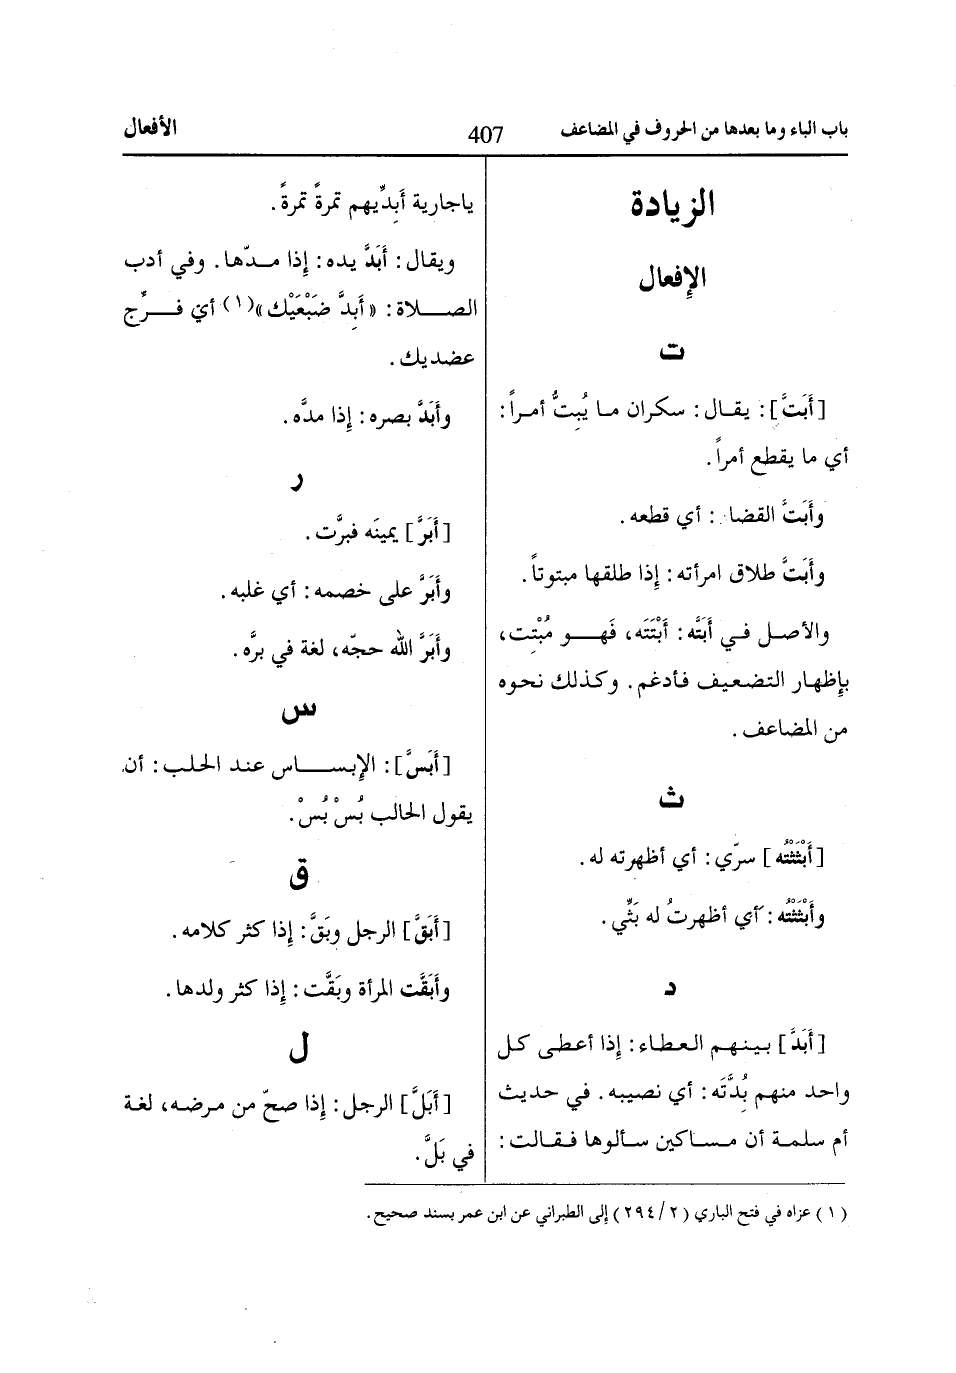 باب الباء وما بعدها من الحروف في المضاعف
407
الأفعال
الزيادة
الإفعال
ت
[أَبَتَّ]: يقال: سكران ما يُبِتُّ أمراً:
أي ما يقطع أمراً.
وأَبَتَّ القضا: أي قطعه.
وأَبَتَّ طلاق امرأته: إذا طلقها مبتوتاً.
والأصل في أَبَتَّه: أَبْتَتَه، فَهو مُبْتِت،
بإظهار التضعيف فأدغم. وكذلك نحوه
من المضاعف.
ث
[أَبْثَثْتُه] سرّي: أي أظهرته له.
وأَبْثَثْتُه: أي أظهرتُ له بَثِّي.
د
[أَبَدَّ] بينهم العطاء: إذا أعطى كل
واحد منهم بُدَّتَه: أي نصيبه. في حديث
أم سلمة أن مساكين سألوها فقالت:
ياجارية أَبِدِّيهم تمرةً تمرةً.
ويقال: أَبَدَّ يده: إذا مدّها. وفي أدب
الصلاة: «أَبِدَّ ضَبْعَيْك»(١) أي فرِّج
عضديك.
وأَبَدَّ بصره: إذا مدَّه.
ر
[أَبَرَّ] يمينَه فبرَّت.
وأَبَرَّ على خصمه: أي غلبه.
وأَبَرَّ الله حجّه، لغة في برَّه.
س
[أَبَسَّ]: الإبساس عند الحلب: أن
يقول الحالب بُسْ بُسْ.
ق
[أَبَقَّ] الرجل وبَقَّ: إذا كثر كلامه.
وأَبَقَّت المرأة وبَقَّت: إذا كثر ولدها.
ل
[أَبَلَّ] الرجل: إذا صحّ من مرضه، لغة
في بَلَّ.
(١) عزاه في فتح الباري (٢/٢٩٤) إلى الطبراني عن ابن عمر بسند صحيح.